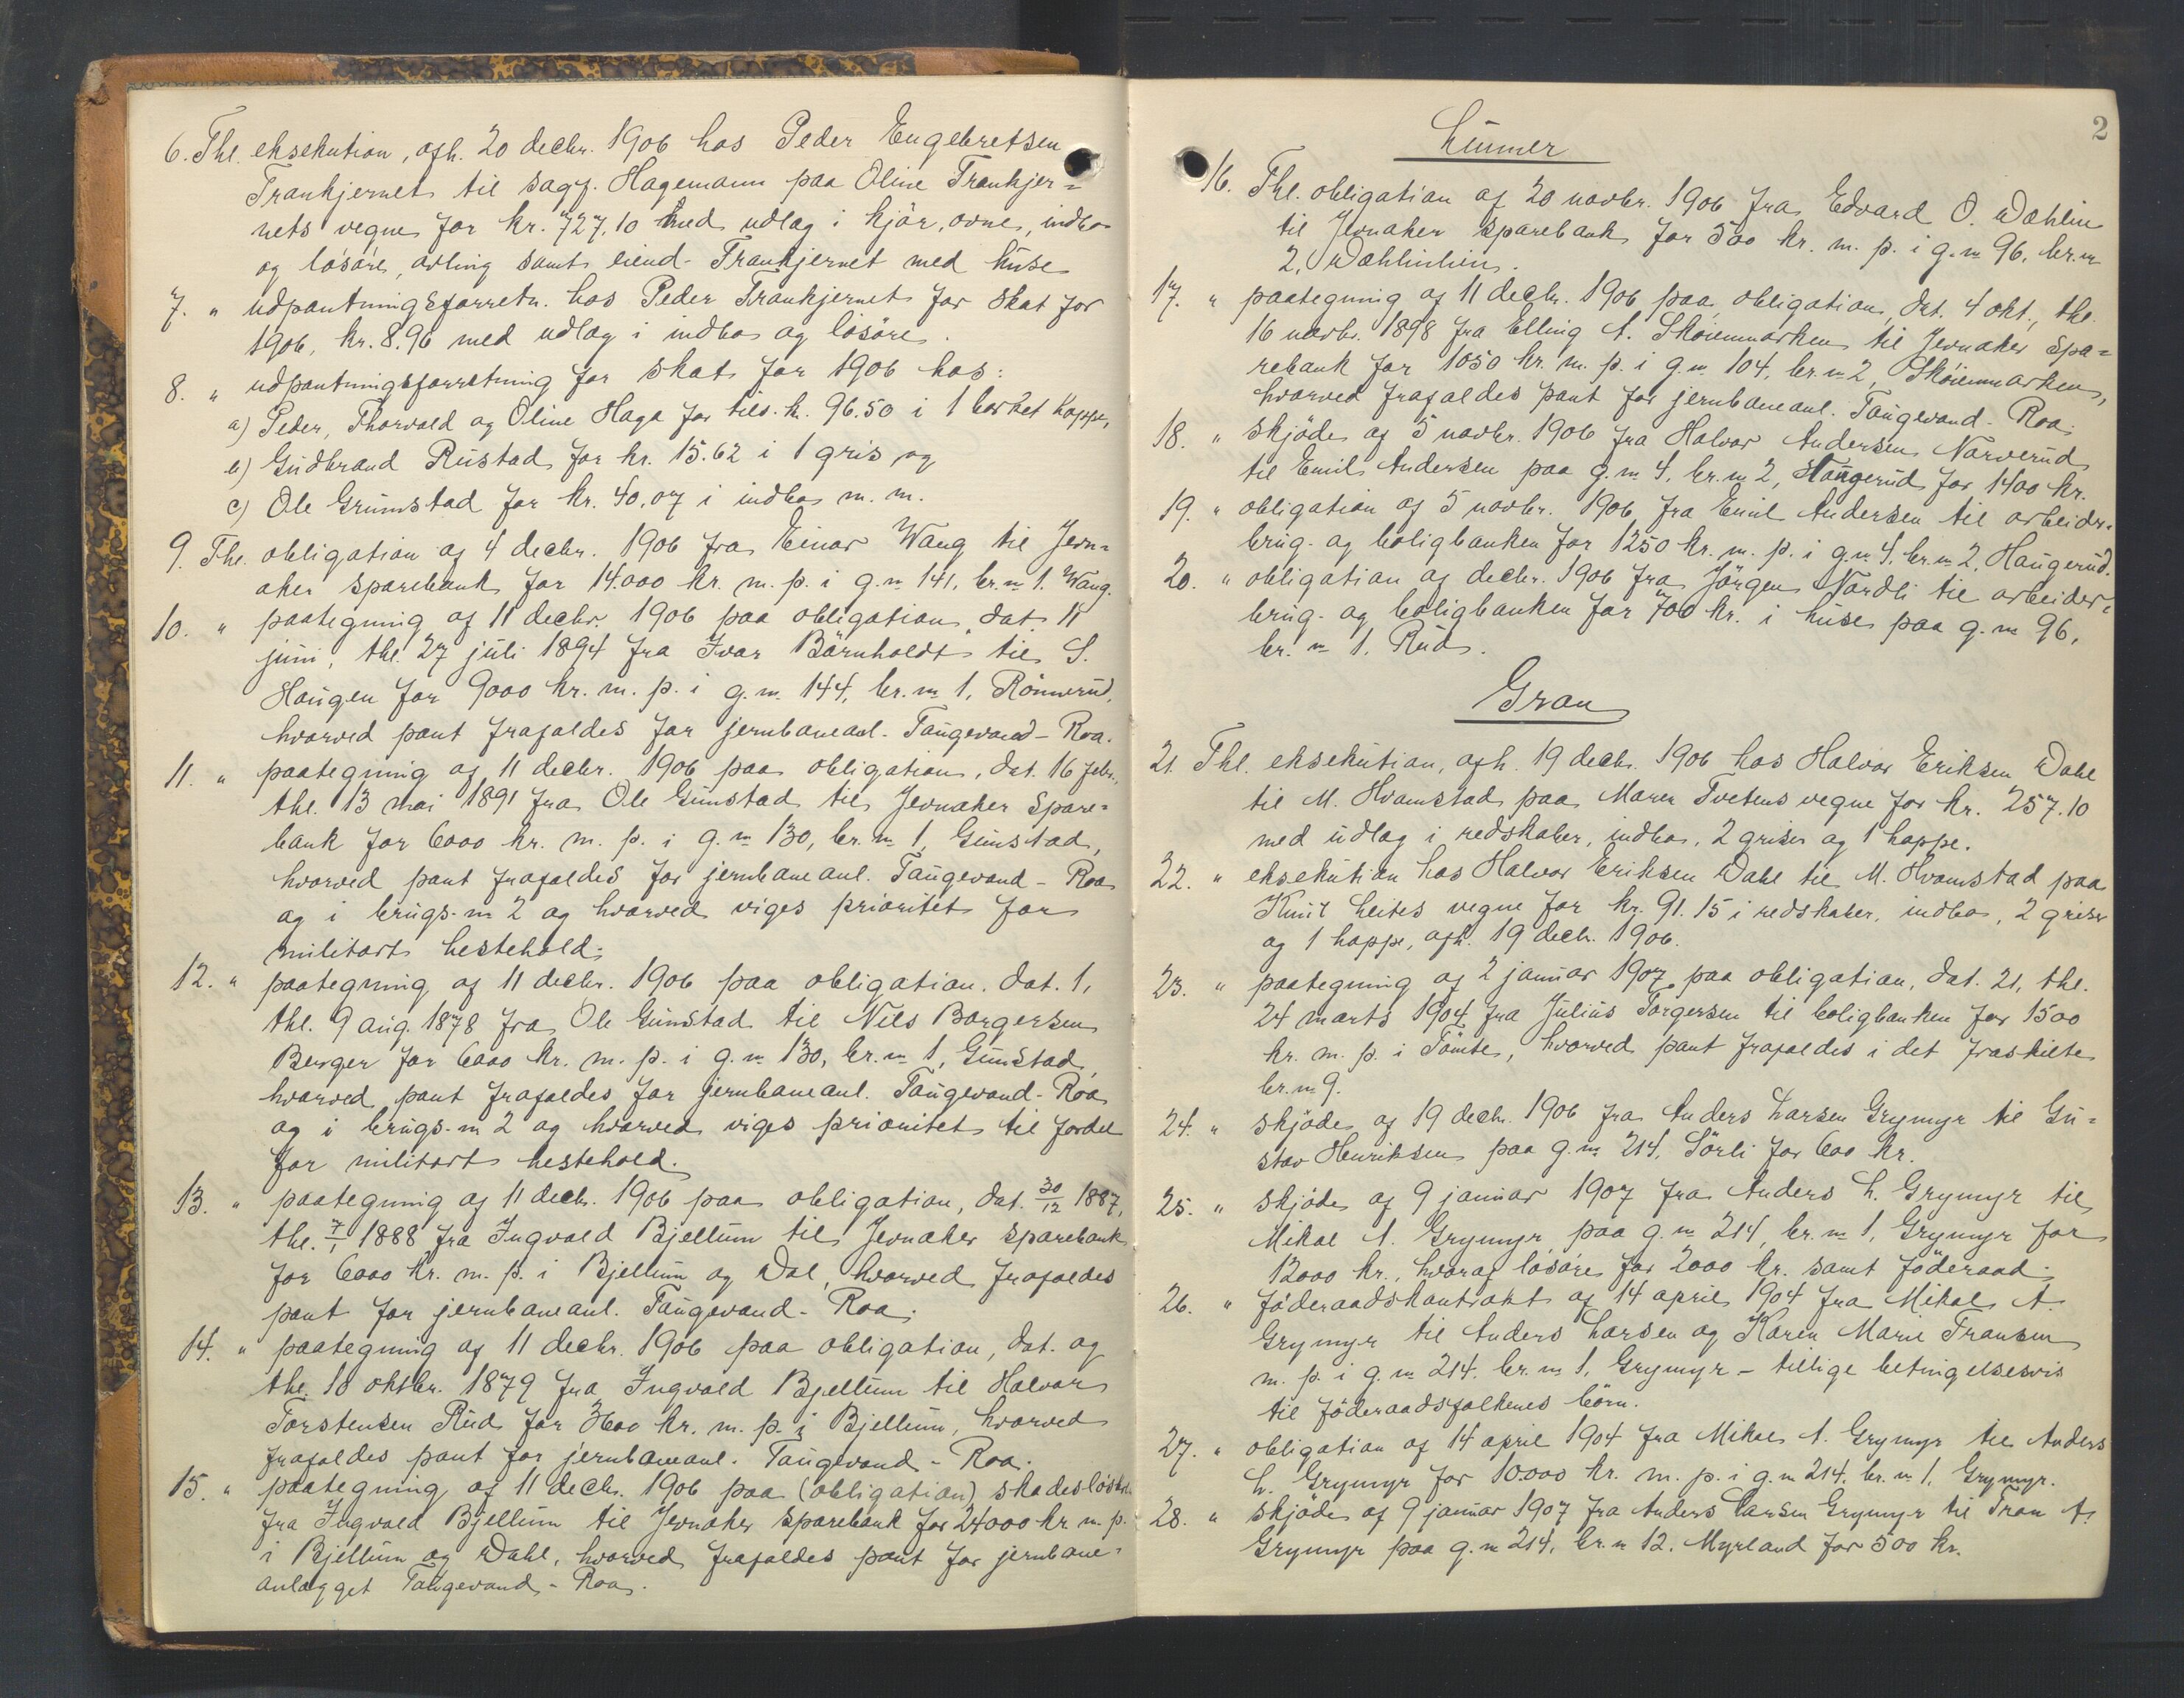 6. Thl. eksekution, afh. 20 decbr. 1906 hos Peder Engebretsen
Trankjernet til sagf. Hagemann paa Oline Trankjer=
nets vegne for kr. 727,10 med udlag i kjör, ovne, indbo
og lösöre, avling samt eiend. Trankjernet med huse
7. " udpantningsforretn. hos Peder Trankjernet for skat for
1906, kr. 8.96 med udlag i indbo og lösöre.
8. " udpantningsforretning for skat for 1906 hos:
a) Peder, Thorvald og Oline Haga for tils. k. 96.50 i 1 borket hoppe,
b) Gudbrand Rustad for kr. 15.62 i 1 gris og
c) Ole Grimstad for kr. 40,07 i indbo m. m.
9. Thl. obligation af 4 decbr. 1906 fra Einar Wang til Jevn=
aker sparebank for 14.000 kr. m. p. i g. n 141, br. n 1. Wang.
10. " paategning af 11 decbr. 1906 paa obligation, dat. 11
juni, thl. 27 juli 1894 fra Ivar Börnholdt til S.
Haugen for 9000 kr. m. p. i g. n. 144, br. n 1, Rönnerud,
hvorved pant frafaldes for jernbaneanl. Taugevand - Roa.
11. " paategning af 11 decbr. 1906 paa obligation, dat. 16 febr.,
thl. 13 mai 1891 fra Ole Gunstad til Jevnaker Spare=
bank for 6000 kr. m. p. i g. n 130, br. n 1, Gunstad,
hvorved pant frafaldes for jernbaneanl. Taugevand - Roa
og i brugs-n 2 og hvorved viges prioritet for
militært hestehold.
12. " paategning af 11 decbr. 1906 paa obligation, dat. 1,
thl. 9 aug. 1878 fra Ole Gunstad til Nils Borgersen
Berger for 6000 kr. m. p. i g. n 130, br. n 1, Gunstad,
hvorved pant frafaldes for jernbaneanl. Taugevand - Roa
og i brugs-n 2 og hvorved viges prioritet til fordel
for militært hestehold.
13. " paategning af 11 decbr. 1906 paa obligation, dat. 30/12 1887,
thl. 7/1 1888 fra Ingvald Bjellum til Jevnaker sparebank
for 6000 kr. m. p. i Bjellum og Dal, hvorved frafaldes
pant for jernbaneanl. Taugevand - Roa.
14. " paategning af 11 decbr. 1906 paa obligation, dat. og
thl. 18 oktbr. 1879 fra Ingvald Bjellum til Halvor
Torstensen Rud for 3600 kr. m. p. i Bjellum, hvorved
frafaldes pant for jernbaneanl. Taugevand - Roa.
15. " paategning af 11 decbr. 1906 paa (obligation)
fra Ingvald Bjellum til Jevnaker Sparebank for 24000 kr m. p.
i Bjellum og Dahl, hvorved frafaldes pant for jernbane=
anlægget Taugevand - Roa.
2
Lunner
16. Thl. obligation af 20 novbr. 1906 fra Edvard O. Dæhlin
til Jevnaker Sparebank for 500 kr. m. p. i g. n 96, br. n
2, Dæhlinlien.
17. " paategning af 11 decbr. 1906 paa obligation, dat. 4 okt., thl.
16 novbr. 1898 fra Elling A. Skøienmarken til Jevnaker Spa=
rebank for 1050 kr. m. p. i g. n 104, br. n 2, Skøienmarken,
hvorved frafaldes pant for jernbaneanl. Taugevand - Roa.
18. " skjöde af 5 novbr. 1906 fra Halvor Andersen Narverud
til Emil Andersen paa g. n 4, br. n 2, Haugerud for 1400 kr.
19. " obligation af 5 novbr. 1906 fra Emil Andersen til arbeider=
brug- og boligbanken for 1250 kr. m. p. i g. n 4, br. n 2, Haugerud.
20. " obligation af decbr. 1906 fra Jörgen Nordli til arbeider=
brug- og boligbanken for 700 kr. i huse paa g. n 96,
br. n 1, Rud.
Gran
21. Thl. eksekution, afh. 19 decbr. 1906 hos Halvor Eriksen Dahl
til M. Hvamstad paa Maren Tvetens vegne for kr. 257.10
med udlag i redskaber, indbo, 2 griser og 1 hoppe.
22. " eksekution hos Halvor Eriksen Dahl til M. Hvamstad paa
Knut Leites vegne for kr. 91.15 i redskaber, indbo, 2 griser
og 1 hoppe, afh. 19 decbr. 1906.
23. " paategning af 2 januar 1907 paa obligation, dat. 21, thl.
24 marts 1904 fra Julius Torgersen til boligbanken for 1500
kr. m. p. i Tömte, hvorved pant frafaldes i det fraskilte
br. n 9.
24. " skjöde af 19 decbr. 1906 fra Anders Larsen Grymyr til Gu=
stav Henriksen paa g. n 214, Sörli for 600 kr.
25. " skjöde af 9 januar 1907 fra Anders L. Grymyr til
Mikal A. Grymyr paa g. n 214, br. n 1, Grymyr for
12000 kr., hvoraf lösöre for 2000 kr. samt föderaad.
26. " föderaadskontrakt af 14 april 1904 fra Mikal A.
Grymyr til Anders Larsen og Karen Marie Fransen
m. p. i g. n 214, br. n 1, Grymyr - tillige betingelsesvis
til föderaadsfolkenes börn.
27. " obligation af 14 april 1904 fra Mikal A. Grymyr til Anders
L. Grymyr for 10.000 kr. m. p. i g. n 214, br. n 1, Grymyr.
28. " skjöde af 9 januar 1907 fra Anders Larsen Grymyr til Fran A.
Grymyr paa g. n 214, br. n 12. Myrland for 500 kr.